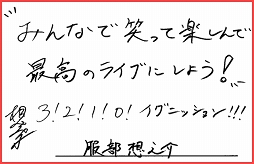 みんなで笑って楽しんで
最高のライブにしよう!
3!2!1!0!イグニッション!!!
服部想之介